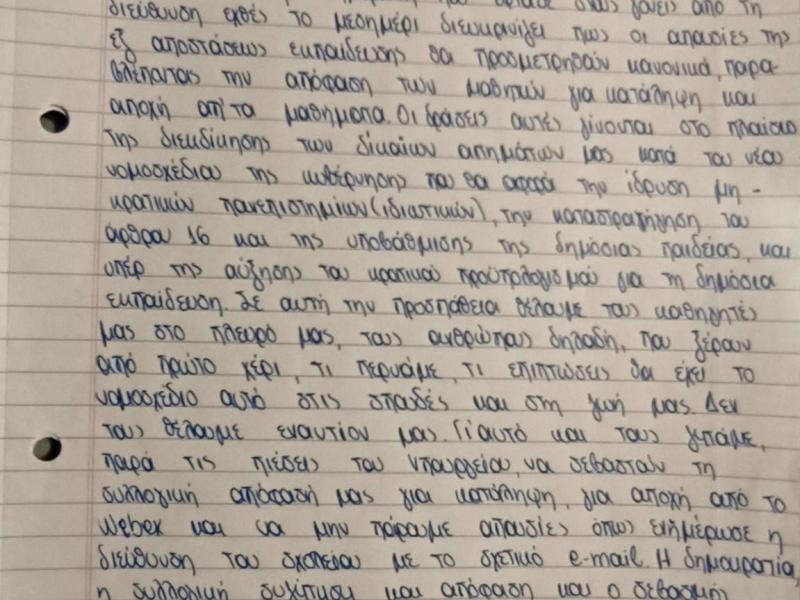 διεύθυνση εχθές το μεσημέρι διευκρινίζει πως οι απουσίες της
εξ αποστάσεως εκπαίδευσης θα προσμετρηθούν κανονικά, παρα-
βλέποντας την απόφαση των μαθητών για κατάληψη και
αποχή απ'τα μαθήματα. Οι δράσεις αυτές γίνονται στο πλαίσιο
της διεκδίκησης των δίκαιων αιτημάτων μας κατά του νέου
νομοσχέδιου της κυβέρνησης που θα αφορά την ίδρυση μη-
κρατικών πανεπιστημίων (ιδιωτικών), την καταστρατήγηση του
άρθρου 16 και της υποβάθμισης της δημόσιας παιδείας, και
υπέρ της αύξησης του κρατικού προϋπολογισμού για τη δημόσια
εκπαίδευση. Σε αυτή την προσπάθεια θέλουμε τους καθηγητές
μας στο πλευρό μας, τους ανθρώπους δηλαδή, που ξέρουν
από πρώτο χέρι, τι περνάμε, τι επιπτώσεις θα έχει το
νομοσχέδιο αυτό στις σπουδές και στη ζωή μας. Δεν
τους θέλουμε εναντίον μας. Γι'αυτό και τους ζητάμε,
παρά τις πιέσεις του Υπουργείου, να σεβαστούν τη
συλλογική απόφασή μας για κατάληψη, για αποχή από το
Webex και να μην πάρουμε απουσίες όπως ενημέρωσε η
διεύθυνση του σχολείου με το σχετικό e-mail. Η δημοκρατία,
η συλλογική συζήτηση και απόφαση και ο σεβασμή